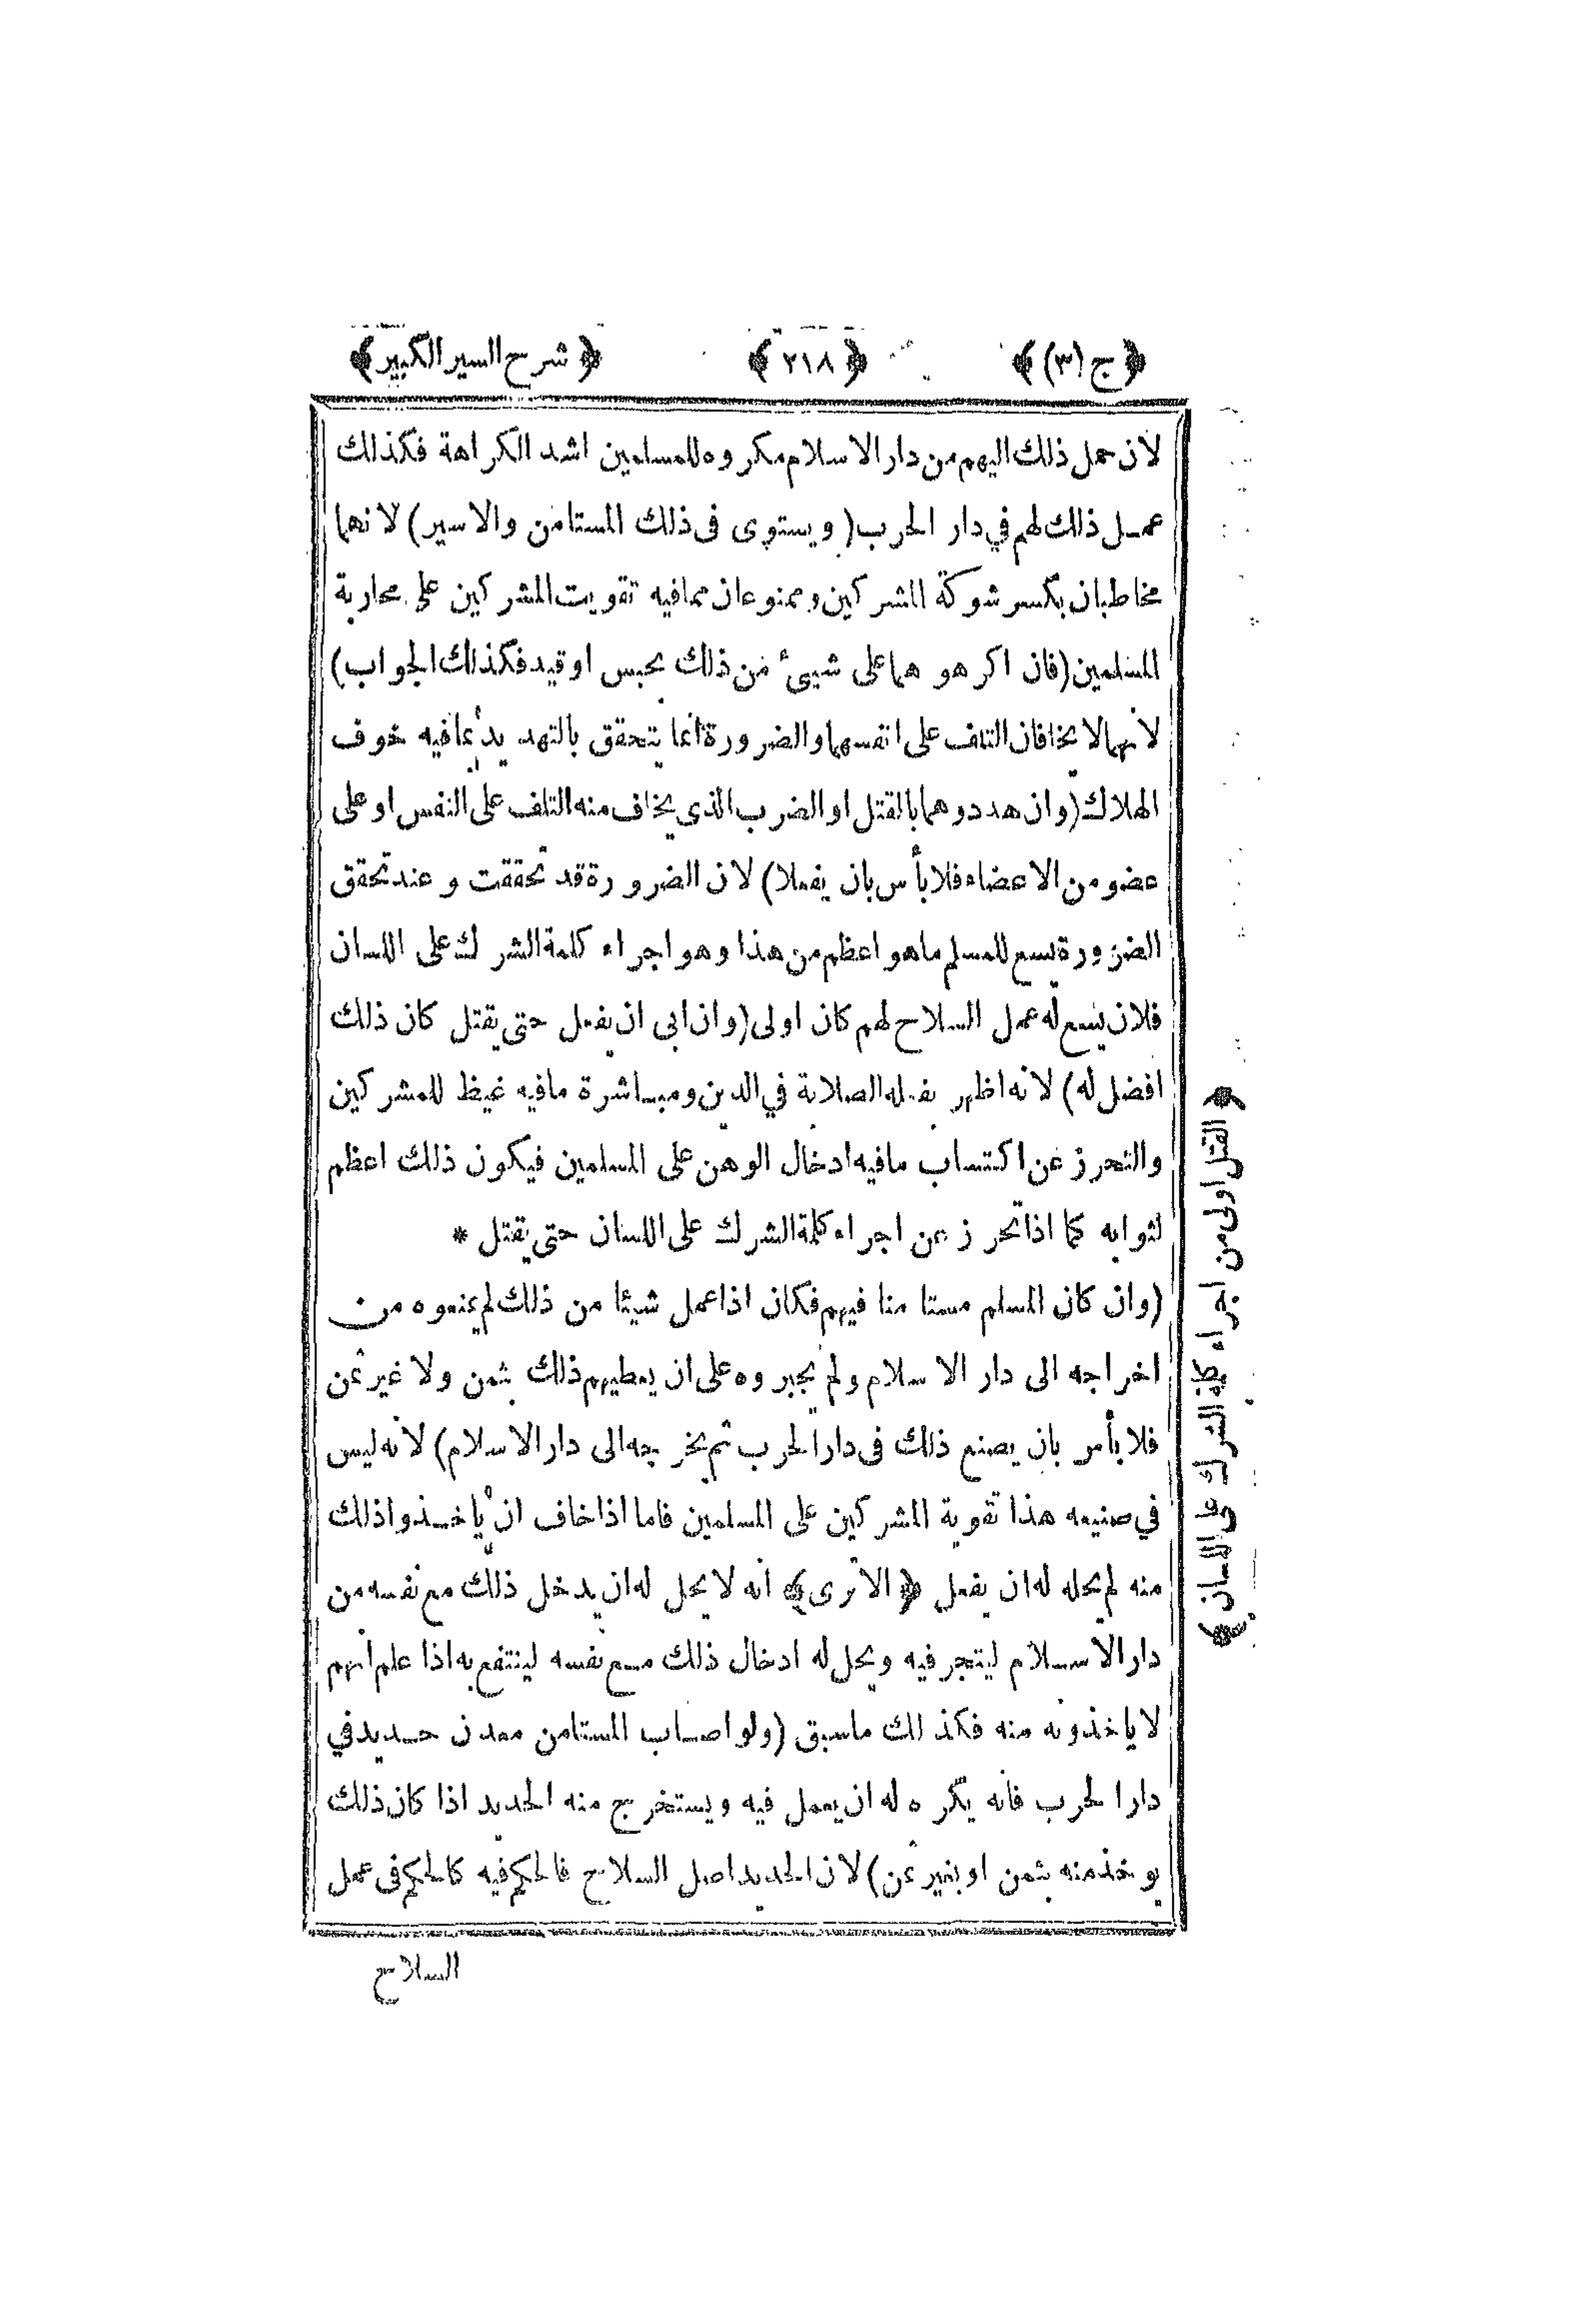 ﴿ج (٣)﴾ ﴿٢١٨﴾ ﴿شرح السير الكبير﴾
لان حمل ذلك اليهم من دار الاسلام مكروه للمسلمين اشد الكراهة فكذلك
عمل ذلك لهم في دار الحرب (ويستوى فى ذلك المستامن والاسير) لانهما
مخاطبان بكسر شوكة المشركين وممنوعان مما فيه تقويت المشركين على محاربة
المسلمين (فان اكرهو هما على شيئ من ذلك بحبس او قيد فكذلك الجواب)
لانهما لا يخافان التلف على انفسهما والضرورة انما يتحقق بالتهديد بما فيه خوف
الهلاك (وان هددوهما بالقتل او الضرب الذى يخاف منه التلف على النفس او على
عضو من الاعضاء فلا بأس بان يفعلا) لان الضرورة قد تحققت و عند تحقق
الضرورة يسع للمسلم ما هو اعظم من هذا وهو اجراء كلمة الشرك على اللسان
فلان يسع له عمل السلاح لهم كان اولى (وان ابى ان يفعل حتى يقتل كان ذلك
افضل له) لانه اظهر بفعله الصلابة في الدين ومباشرة ما فيه غيظ للمشركين
والتحرز عن اكتساب ما فيه ادخال الوهن على المسلمين فيكون ذلك اعظم
لثوابه كما اذا تحرز عن اجراء كلمة الشرك على اللسان حتى يقتل *
(وان كان المسلم مستامنا فيهم فكان اذا عمل شيئا من ذلك لم يمنعوه من
اخراجه الى دار الاسلام ولم يجبروه على ان يعطيهم ذلك بثمن ولا غير ثمن
فلا بأس بان يصنع ذلك فى دار الحرب ثم يخرجه الى دار الاسلام) لانه ليس
في صنيعه هذا تقوية المشركين على المسلمين فاما اذا خاف ان يأخذوا ذلك
منه لم يحله له ان يفعل ﴿الا ترى﴾ انه لا يحل له ان يدخل ذلك مع نفسه من
دار الاسلام ليتجر فيه ويحل له ادخال ذلك مع نفسه لينتفع به اذا علم انهم
لا ياخذونه منه فكذلك ما سبق (ولو اصاب المستامن معدن حديد في
دار الحرب فانه يكره له ان يعمل فيه ويستخرج منه الحديد اذا كان ذلك
يوخذ منه بثمن او بغير ثمن) لان الحديد اصل السلاح فالحكم فيه كالحكم فى عمل
السلاح
﴿القتل اولى من اجراء كلمة الشرك على اللسان﴾